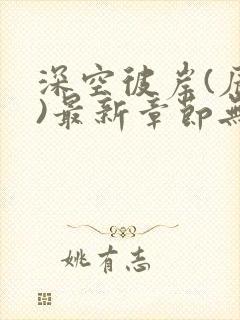 深空彼岸(
)最新章节無
姚有志